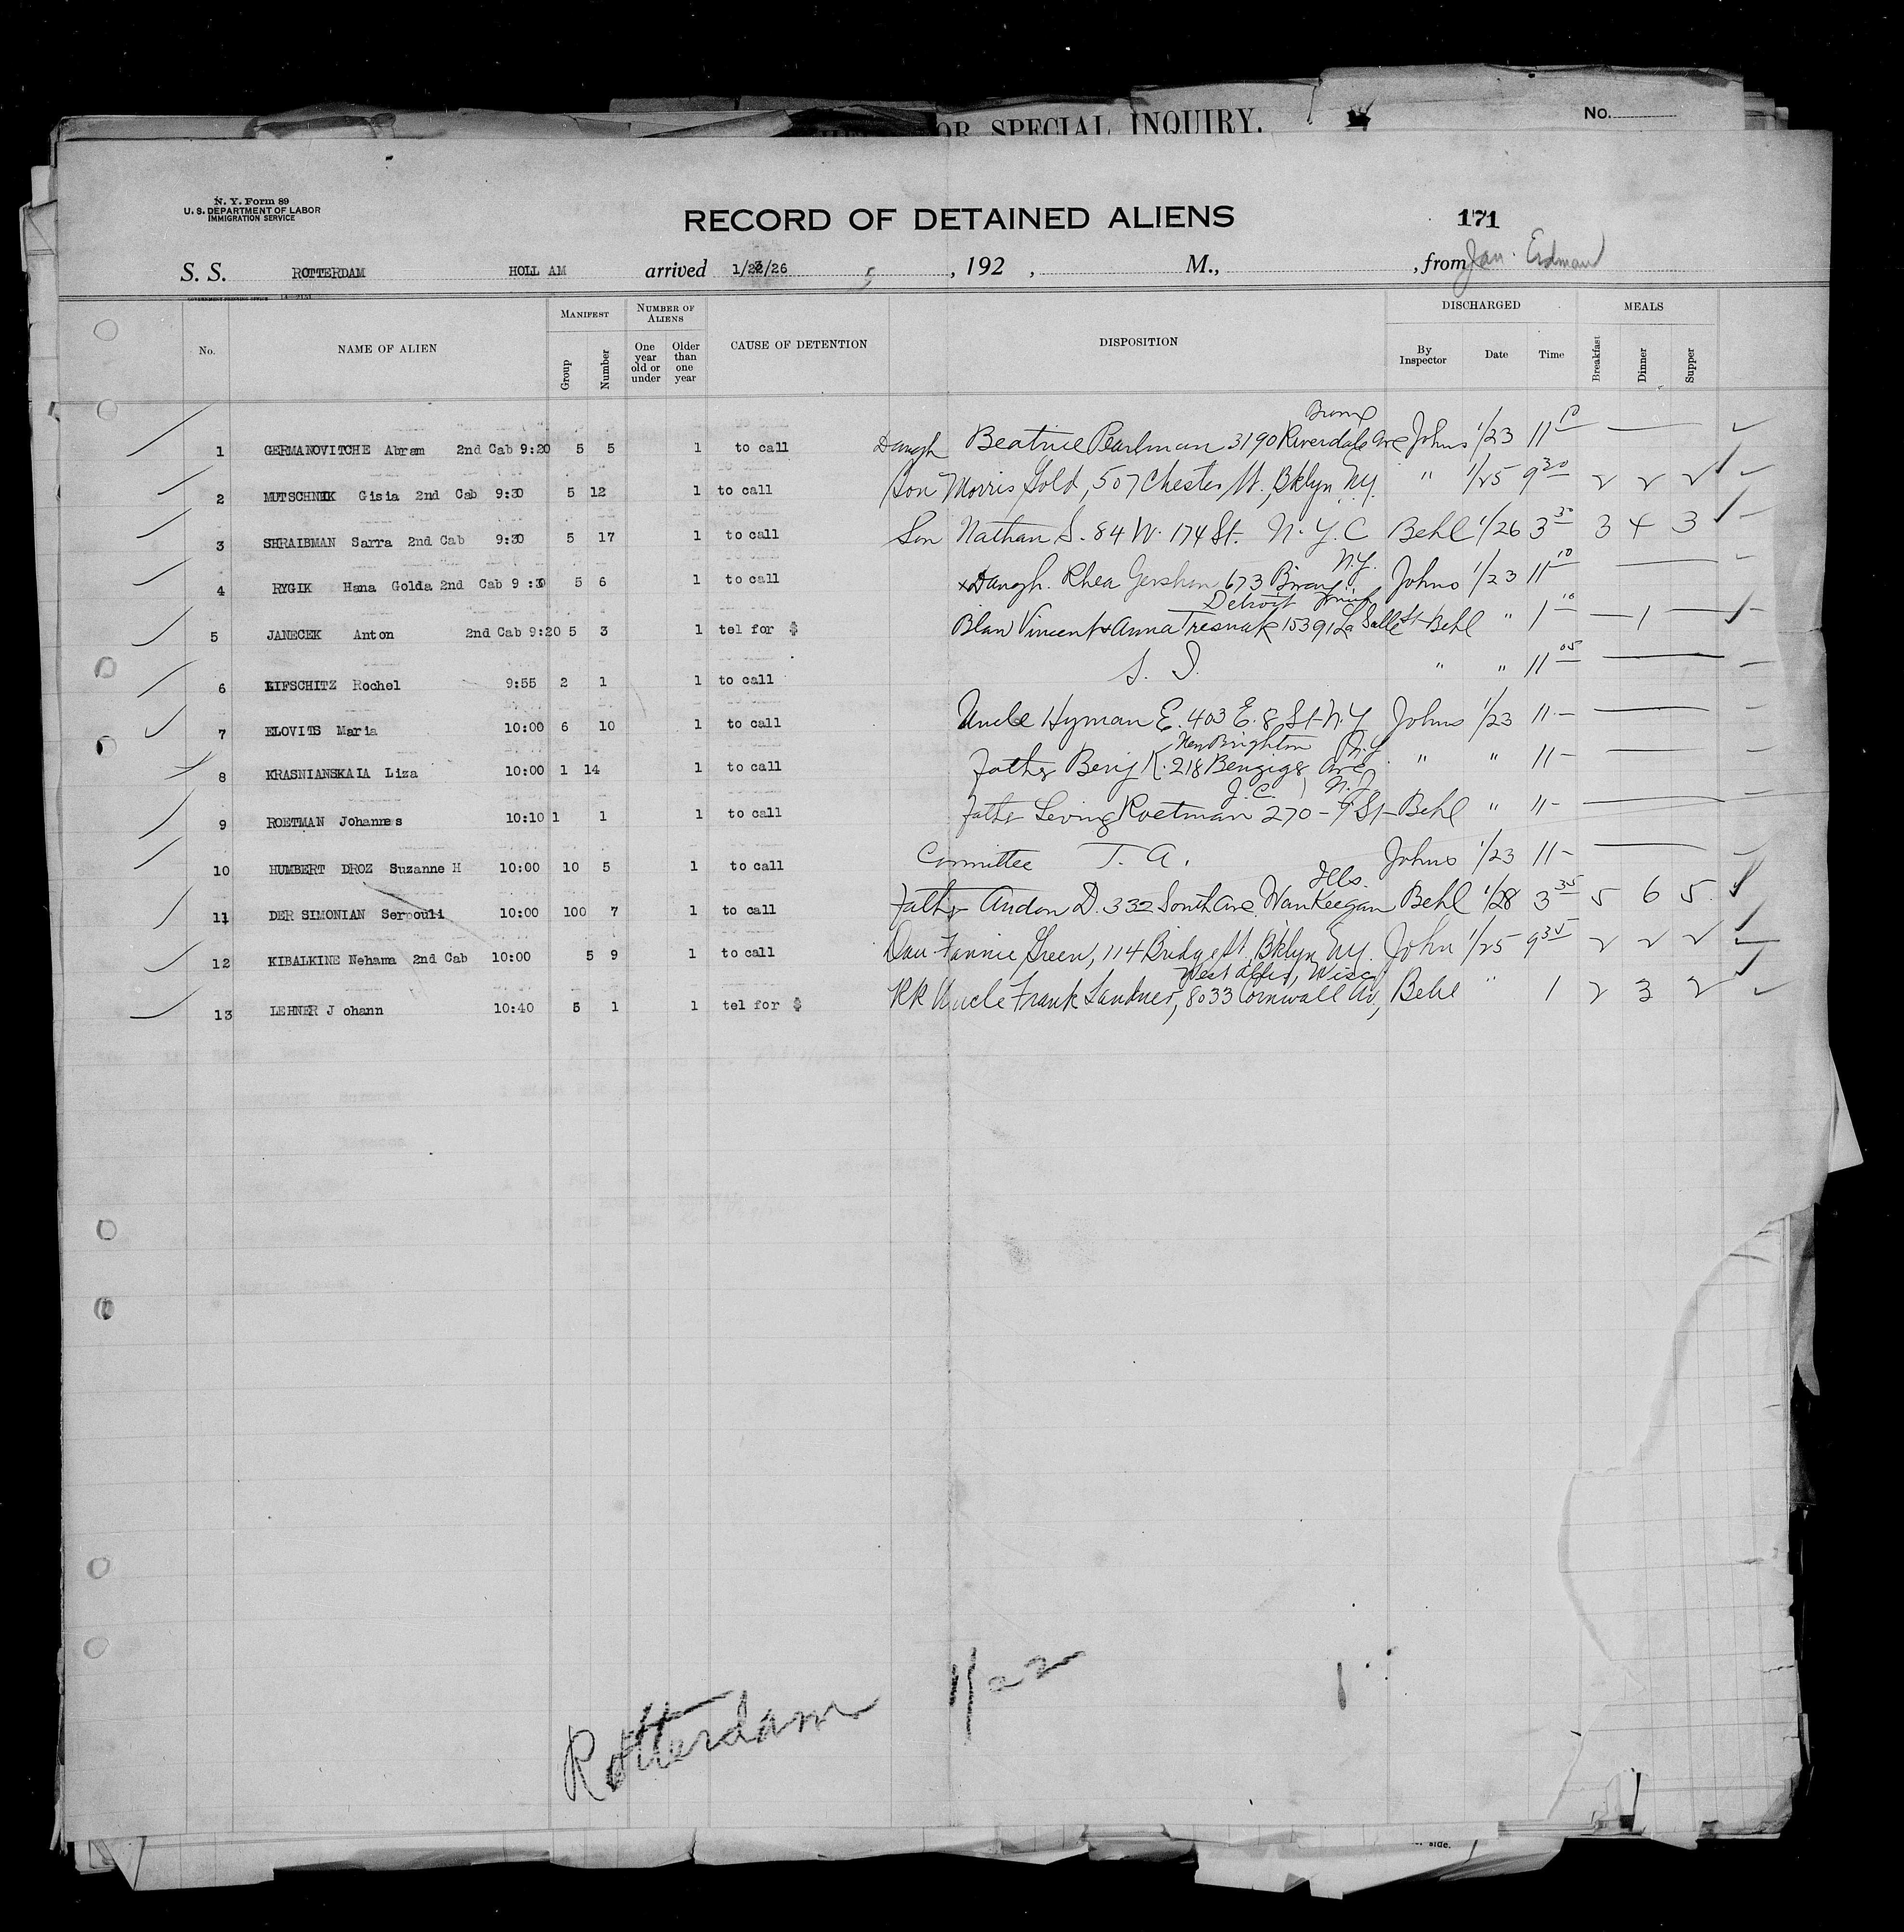 OR SPECIAL INQUIRY.
No.
N. Y. Form 89
U. S. DEPARTMENT OF LABOR
IMMIGRATION SERVICE
RECORD OF DETAINED ALIENS
171
S. S. ROTTERDAM HOLL AM arrived 1/23/26 , 192 , M., , from Jan. Erdman
GOVERNMENT PRINTING OFFICE
No. NAME OF ALIEN MANIFEST Group Number NUMBER OF ALIENS One year old or under Older than one year CAUSE OF DETENTION DISPOSITION DISCHARGED By Inspector Date Time MEALS Breakfast Dinner Supper
Bronx
1 GERMANOVITCHE Abram 2nd Cab 9:20 5 5 1 to call Daugh Beatrice Pearlman 3190 Riverdale Ave Johns 1/23 11 10
2 MUTSCHNIK Gisia 2nd Cab 9:30 5 12 1 to call Son Morris Gold, 507 Chester St., Bklyn NY. " 1/25 9 30 2 2 2
3 SHRAIBMAN Sarra 2nd Cab 9:30 5 17 1 to call Son Nathan S. 84 W. 174 St. N.Y.C Behl 1/26 3 30 3 4 3
N.Y.
4 RYGIK Hana Golda 2nd Cab 9:30 5 6 1 to call x Daugh. Rhea Gershon 673 Bway Johns 1/23 11 10
Detroit Mich
5 JANECEK Anton 2nd Cab 9:20 5 3 1 tel for $ Blaw Vincent & Anna Tresnak 15391 La Salle St Behl " 1 10 — 1 —
6 LIFSCHITZ Rochel 9:55 2 1 1 to call S. I. " " 11 05
7 ELOVITS Maria 10:00 6 10 1 to call Uncle Hyman E. 403 E. 8 St N.Y Johns 1/23 11 —
New Brighton N.Y
8 KRASNIANSKAIA Liza 10:00 1 14 1 to call Father Benj K. 218 Ave " " 11 —
J.C. N.J
9 ROETMAN Johannes 10:10 1 1 1 to call Father Roetman 270 - 9 St Behl " 11 —
10 HUMBERT DROZ Suzanne H 10:00 10 5 1 to call Committee T. A. Johns 1/23 11 —
Ills.
11 DER SIMONIAN Serpouli 10:00 100 7 1 to call Father Andon D. 332 South Ave Waukeegan Behl 1/28 3 35 5 6 5
12 KIBALKINE Nehama 2nd Cab 10:00 5 9 1 to call Dau Fannie Green, 114 Bridge St, Bklyn NY. John 1/25 9 35 2 2 2
West Allis, Wisc
13 LEHNER J ohann 10:40 5 1 1 tel for $ RR Uncle Frank Landner, 8033 Cornwall Av, Behl " 1 2 3 2
Rotterdam
side.